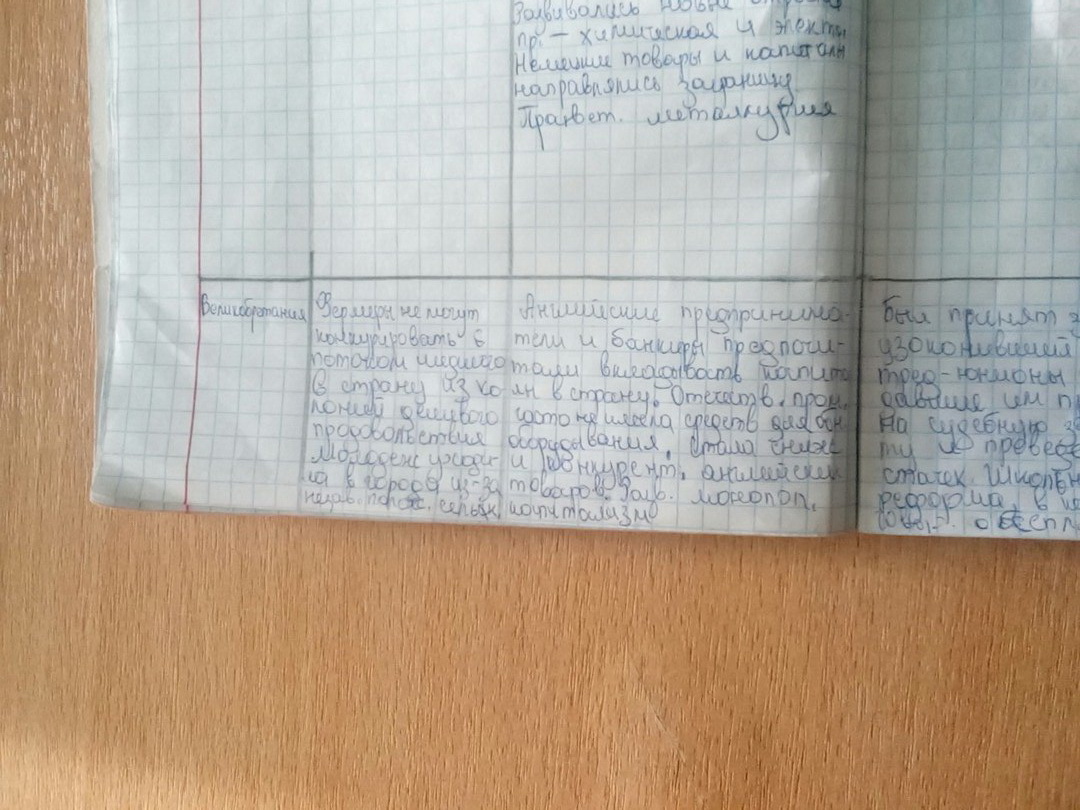 Развивались новые
пр. – химическая и электр.
Немецкие товары и капиталы
направлялись заграницу.
металлургия
Великобритания
Фермеры не могут
конкурировать с
потоком шедшего
в страну из ко
лоний дешевого
продовольствия
Молодежь уходи-
ла в города из-за
Английские предпринима-
тели и банкиры предпочи-
тали вкладывать капита
лы в страну. Отечеств. пром.
часто не имела средств для
оборудования, стала сниж
и конкурент. английских
товаров. Разв. монопол.
капитализм
Был принят
узаконивший
тред-юнионы
давшие им пр
на судебную з
ту и проведе
стачек. Школьн
реформа, в
обеспе